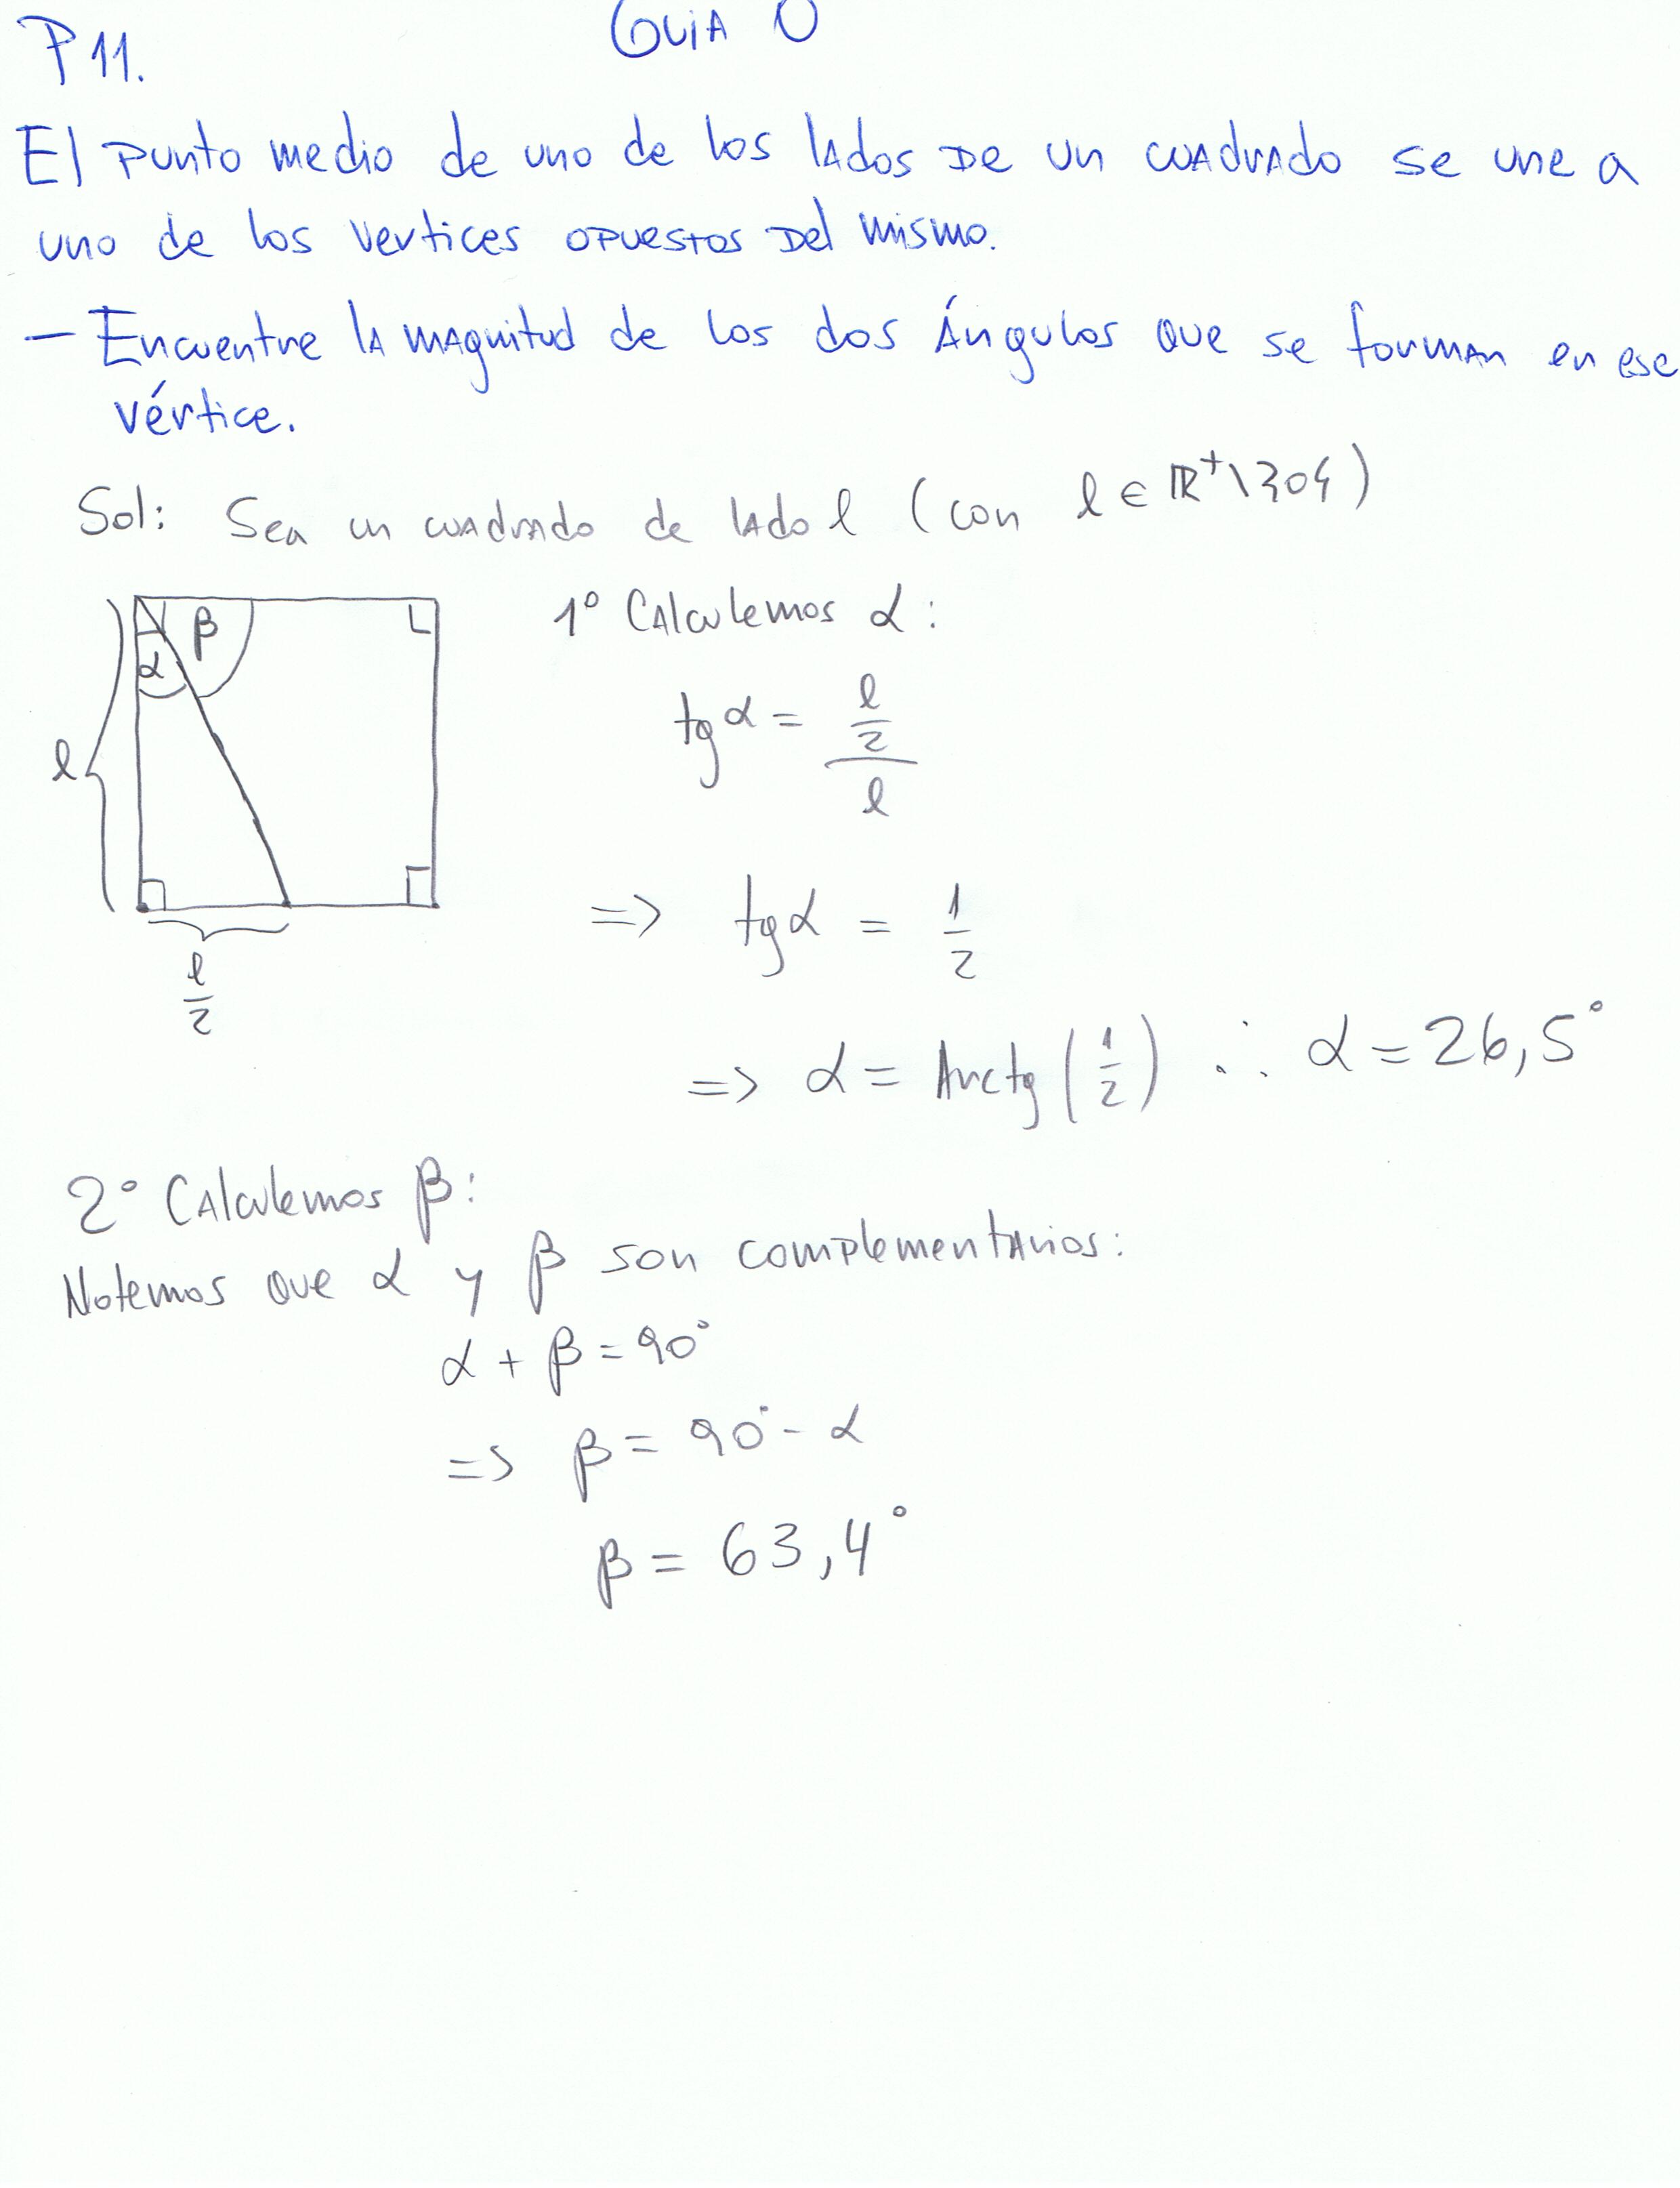 GUIA 0
P11.
El punto medio de uno de los lados de un cuadrado se une a
uno de los vertices opuestos del mismo.
- Encuentre la magnitud de los dos Ángulos que se forman en ese
vértice.
Sol: Sea un cuadrado de lado l (con l ∈ ℝ⁺\{0})
β
α
l
l/2
1º Calculemos α:
tg α = (l/2)/l
=> tg α = 1/2
=> α = Arctg(1/2) ∴ α = 26,5°
2° Calculemos β:
Notemos que α y β son complementarios:
α + β = 90°
=> β = 90° - α
β = 63,4°